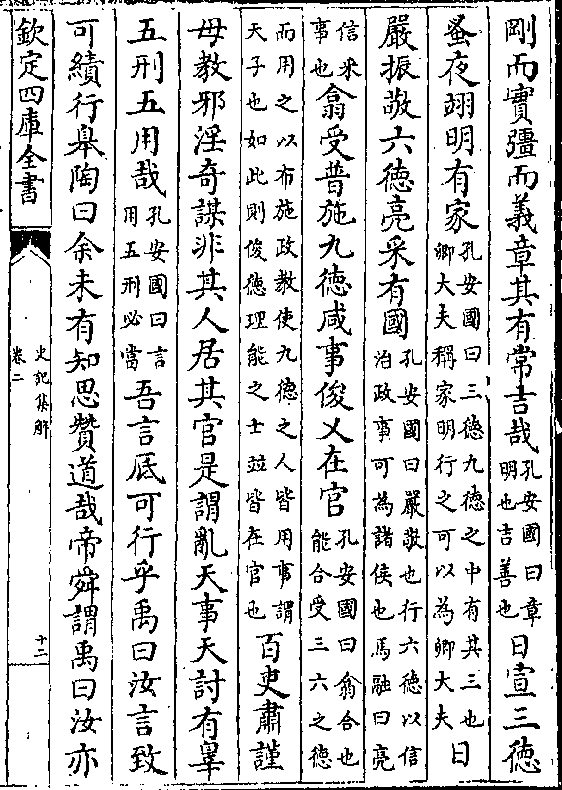 剛而實彊而義章其有常吉哉孔安國曰章明也吉善也日宣三德
蚤夜翊明有家孔安國曰三德九德之中有其三也卿大夫稱家明行之可以為卿大夫日
嚴振敬六德亮采有國孔安國曰嚴敬也行六德以信治政事可為諸侯也馬融曰亮
信采事也翕受普施九德咸事俊乂在官孔安國曰翕合也能合受三六之德
而用之以布施政教使九德之人皆用事謂天子也如此則俊德理能之士並皆在官也百吏肅謹
毋教邪淫奇謀非其人居其官是謂亂天事天討有辠
五刑五用哉孔安國曰言用五刑必當吾言厎可行乎禹曰汝言致
可績行皋陶曰余未有知思贊道哉帝舜謂禹曰汝亦
欽定四庫全書
史記集解
卷二
十二